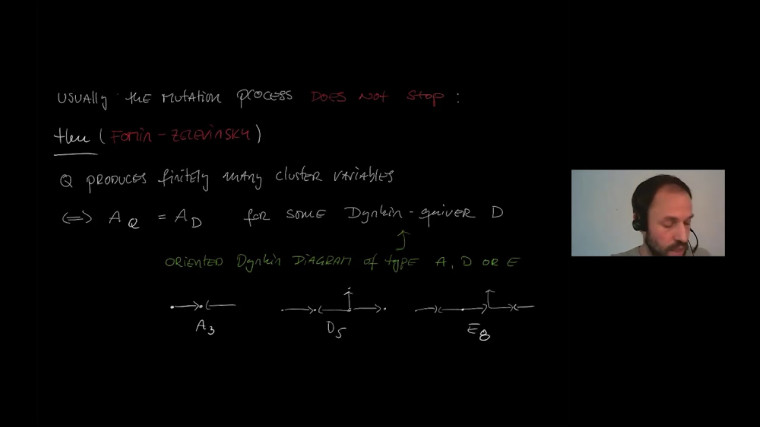 USUALLY THE MUTATION PROCESS DOES NOT STOP :
thm ( FOMIN - ZELEVINSKY )
Q PRODUCES finitely MANY CLUSTER VARIABLES
⇔ A_Q = A_D for some Dynkin - quiver D
ORIENTED Dynkin DIAGRAM of type A, D OR E
A_3 D_5 E_8